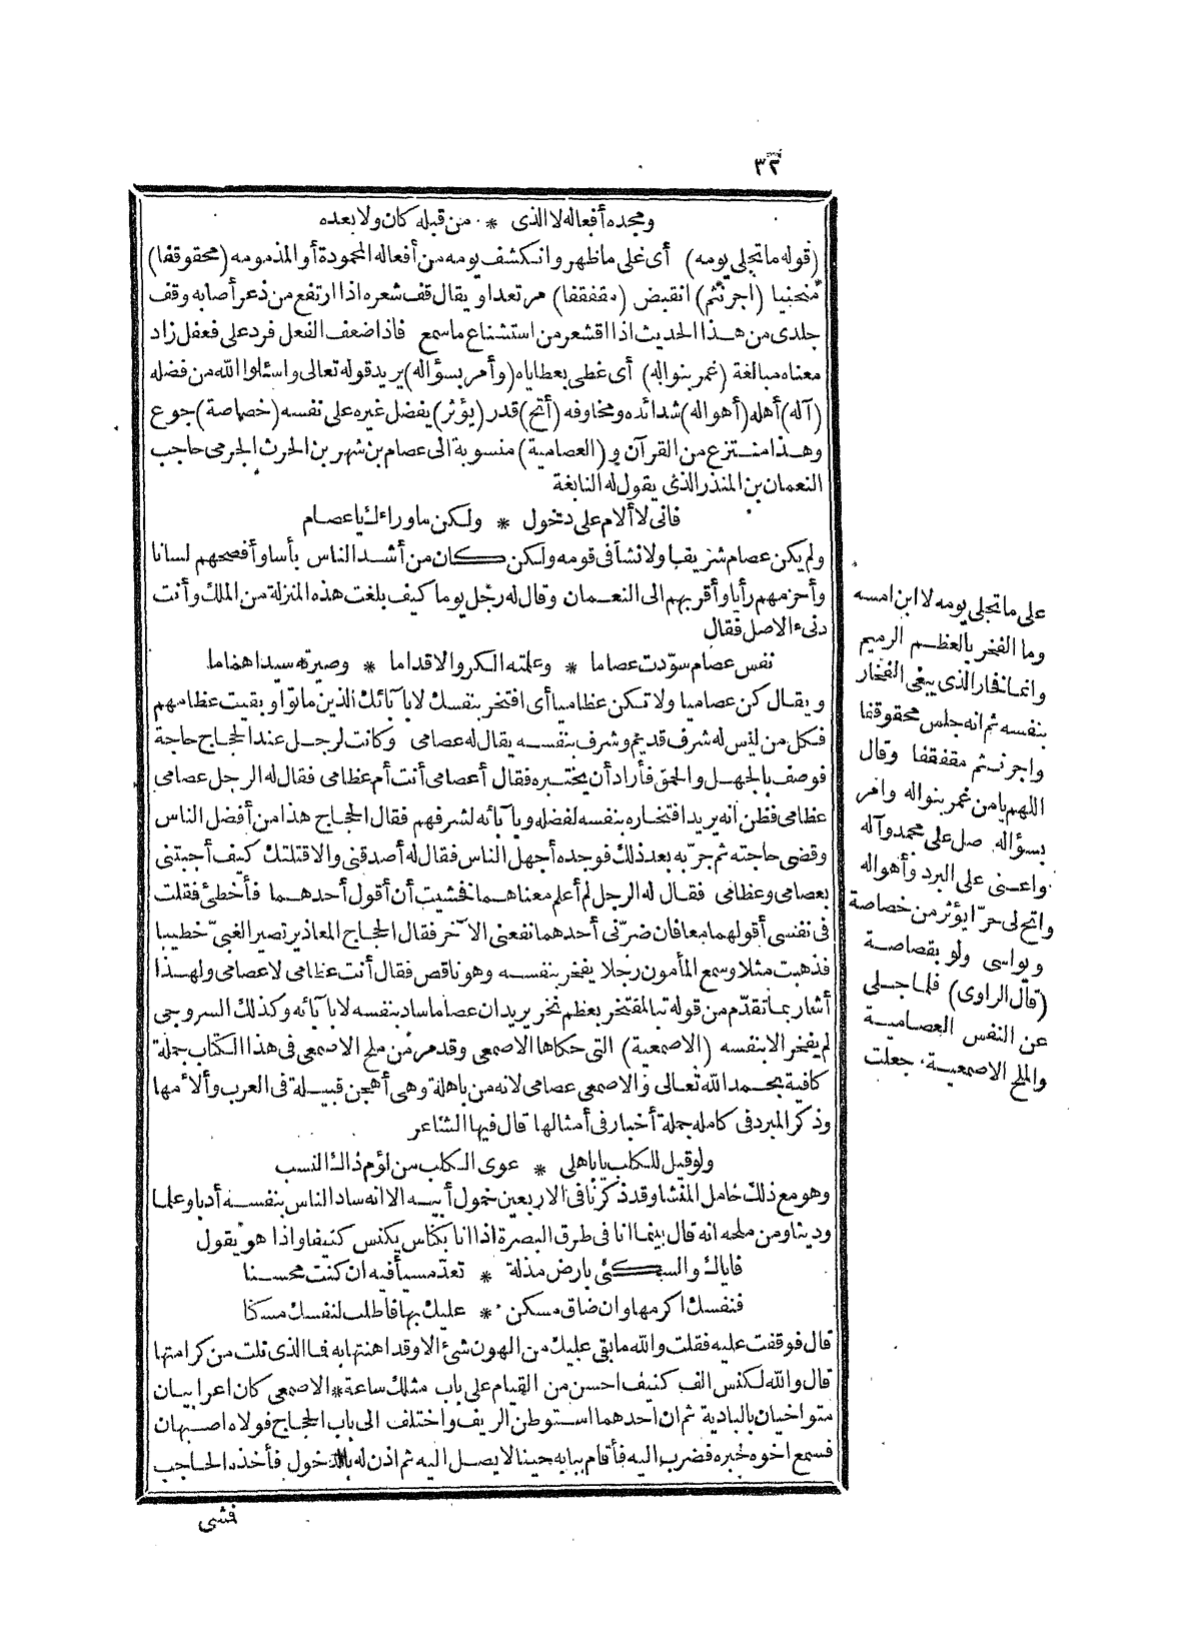 ٣٢
ومجده أفعاله لا الذى * من قبله كان ولا بعده
(قوله ما تجلى يومه) أى على ما ظهر وانكشف يومه من أفعاله المحمودة أو المذمومة (محقوقفا)
منحنيا (اجرنثم) انقبض (مقفقفا) مرتعدا ويقال قف شعره اذا ارتفع من ذعر أصابه وقف
جلدى من هذا الحديث اذا اقشعر من استشناع ما سمع فاذا ضعف الفعل فرد على فعفل زاد
معناه مبالغة (غمر بنواله) أى غطى بعطاياه (وأمر بسؤاله) يريد قوله تعالى واسئلوا الله من فضله
(آله) أهله (أهواله) شدائده ومخاوفه (أتح) قدر (يؤثر) يفضل غيره على نفسه (خصاصة) جوع
وهذا منتزع من القرآن و (العصامية) منسوبة الى عصام بن شهر بن الحرث الجرمى حاجب
النعمان بن المنذر الذى يقول له النابغة
فانى لا ألام على دخول * ولكن ما وراءك يا عصام
ولم يكن عصام شريفا ولا نشأ فى قومه ولكن كان من أشد الناس بأسا وأفصحهم لسانا
وأحزمهم رأيا وأقربهم الى النعمان وقال له رجل يوما كيف بلغت هذه المنزلة من الملك وأنت
دنىء الاصل فقال
نفس عصام سوّدت عصاما * وعلمته الكر والاقداما * وصيرته سيدا هماما
ويقال كن عصاميا ولا تكن عظاميا أى افتخر بنفسك لا بآبائك الذين ماتوا وبقيت عظامهم
فكل من ليس له شرف قديم وشرف بنفسه يقال له عصامى وكانت لرجل عند الحجاج حاجة
فوصف بالجهل والحمق فأراد أن يختبره فقال أعصامى أنت أم عظامى فقال له الرجل عصامى
عظامى فظن أنه يريد افتخاره بنفسه لفضله وبآبائه لشرفهم فقال الحجاج هذا من أفضل الناس
وقضى حاجته ثم جرّبه بعد ذلك فوجده أجهل الناس فقال له أصدقنى والاقتلتك كيف أجبتنى
بعصامى وعظامى فقال له الرجل لم أعلم معناهما فخشيت أن أقول أحدهما فأخطئ فقلت
فى نفسى أقولهما معا فان ضرّنى أحدهما نفعنى الآخر فقال الحجاج المعاذير تصير الغبىّ خطيبا
فذهبت مثلا وسمع المأمون رجلا يفخر بنفسه وهو ناقص فقال أنت عظامى لا عصامى ولهذا
أشار بما تقدّم من قوله تبا لمفتخر بعظم نخر يريد ان عصاما ساد بنفسه لا بآبائه وكذلك السروجى
لم يفخر الا بنفسه (الاصمعية) التى حكاها الاصمعى وقد مر من ملح الاصمعى فى هذا الكتاب جملة
كافية بحمد الله تعالى والاصمعى عصامى لانه من باهلة وهى أهجن قبيلة فى العرب وألأمها
وذكر المبرد فى كامله جملة أخبار فى أمثالها قال فيها الشاعر
ولو قيل للكلب يا باهلى * عوى الكلب من لؤم ذاك النسب
وهو مع ذلك خامل المنشا وقد ذكرنا فى الاربعين خمول أبيه الا انه ساد الناس بنفسه أدبا وعلما
ودينا ومن ملحه انه قال بينما انا فى طرق البصرة اذا انا بكناس يكنس كنيفا واذا هو يقول
فاياك والسكنى بارض مذلة * تعدّ مسيأ فيه ان كنت محسنا
فنفسك اكرمها وان ضاق مسكن * عليك بها فاطلب لنفسك مسكنا
قال فوقفت عليه فقلت والله ما بقى عليك من الهون شئ الا وقد اهنتها به فما الذى نلت من كرامتها
قال والله لكنس الف كنيف احسن من القيام على باب مثلك ساعة * الاصمعى كان اعرابيان
متواخيان بالبادية ثم ان احدهما استوطن الريف واختلف الى باب الحجاج فولاه اصبهان
فسمع اخوه خبره فضرب اليه فأقام ببابه حينا لا يصل اليه ثم اذن له بالدخول فأخذه الحاجب
فشى
على ما تجلى يومه لا ابن امسه
وما الفخر بالعظم الرميم
وانما فخار الذى يبغى الفخار
بنفسه ثم انه جلس محقوقفا
واجرنثم مقفقفا وقال
اللهم يا من غمر بنواله وامر
بسؤاله صل على محمد وآله
واعنى على البرد وأهواله
واتح لى حرّا يؤثر من خصاصة
ويواسى ولو بقصاصة
(قال الراوى) فلما جلى
عن النفس العصامية
والملح الاصمعية جعلت